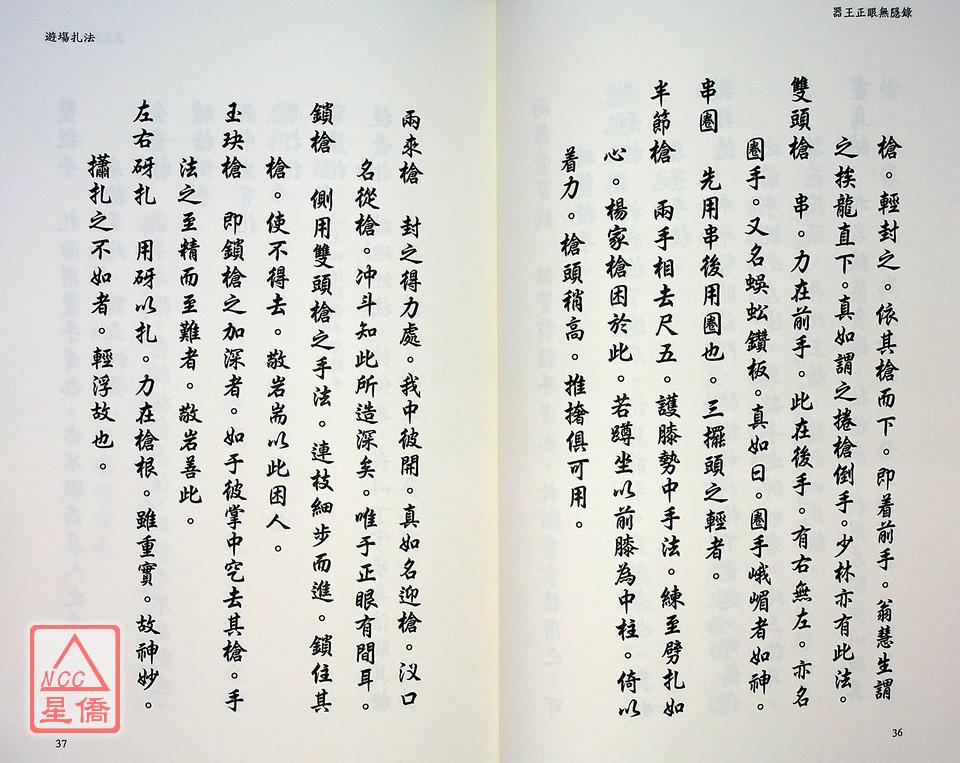 器王正眼無隱錄
槍。輕封之。依其槍而下。即着前手。翁慧生謂
之挨龍直下。真如謂之捲槍倒手。少林亦有此法。
雙頭槍　串。力在前手。此在後手。有右無左。亦名
圈手。又名蜈蚣鑽板。真如曰。圈手峨嵋者如神。
串圈　先用串後用圈也。三擺頭之輕者。
半節槍　兩手相去尺五。護膝勢中手法。練至劈扎如
心。楊家槍困於此。若蹲坐以前膝為中柱。倚以
着力。槍頭稍高。推撦俱可用。
36
遊塲扎法
兩來槍　封之得力處。我中彼開。真如名迎槍。汊口
名從槍。冲斗知此所造深矣。唯于正眼有間耳。
鎖槍　側用雙頭槍之手法。連枝細步而進。鎖住其
槍。使不得去。敬岩耑以此困人。
玉玦槍　即鎖槍之加深者。如于彼掌中穵去其槍。手
法之至精而至難者。敬岩善此。
左右砑扎　用砑以扎。力在槍根。雖重實。故神妙。
攇扎之不如者。輕浮故也。
37
NCC
星僑